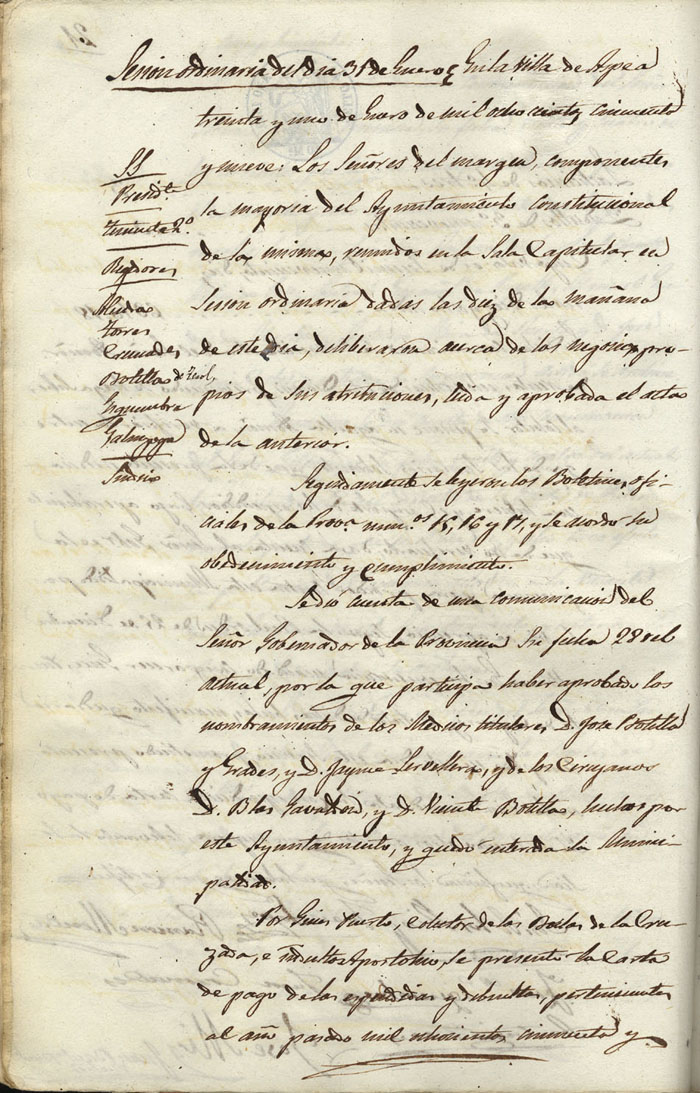 Sesion ordinaria del dia 31 de Enero En la Villa de Aspe a
treinta y uno de Enero de mil ochocientos cincuenta
y nueve: Los Señores del margen, componentes
la mayoria del Ayuntamiento Constitucional
de la misma, reunidos en la Sala Capitular en
Sesion ordinaria dadas las diez de la mañana
de este dia, deliberaron acerca de los negocios pro-
pios de sus atribuciones, leida y aprobada el acta
de la anterior.
SS
Presidte.
Teniente 2º
Regidores
Mira
Torres
Cremades
Botella de
Galinsoga
Sindico
Seguidamente se leyeron los Boletines ofi-
ciales de la Prova. numos. 15, 16 y 17, y se acordó su
obedecimiento y cumplimiento.
Se dió cuenta de una comunicacion del
Señor Gobernador de la Provincia su fecha 28 del
actual, por la que participa haber aprobado los
nombramientos de los Medicos titulares D. Jose Botella
y Grades, y D. Jayme Cervellera, y de los Cirujanos
D. Blas y D. Vicente Botella, hechos por
este Ayuntamiento, y quedó enterada la Munici-
palidad.
Por Gines Puerto, Colector de las Bulas de la Cru-
zada, e indulto Apostolico, se presentó la Carta
de pago de las espendidas y debueltas, pertenecientes
al año pasado mil ochocientos cincuenta y